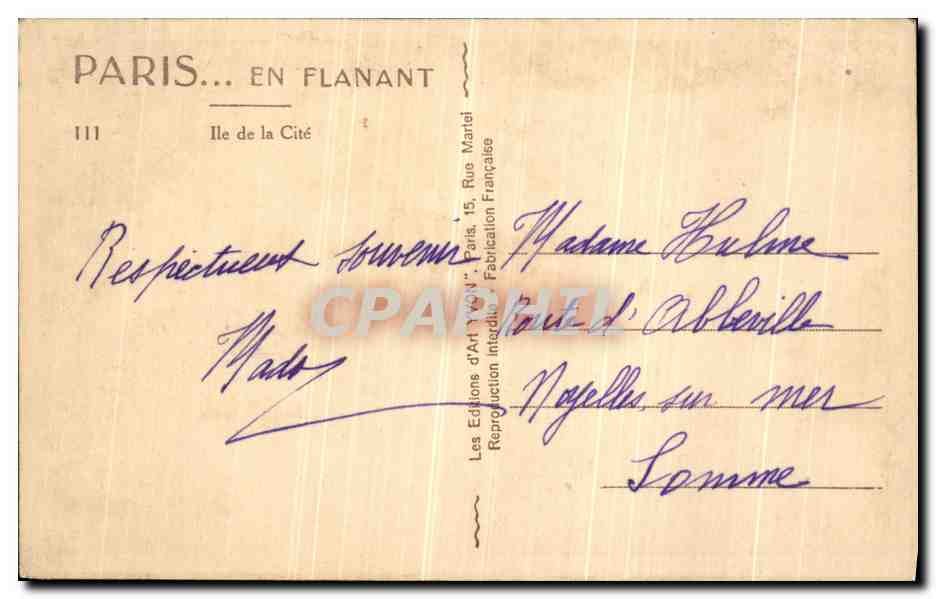 PARIS... EN FLANANT
111 Ile de la Cité
Respectueux souvenir
Mado
Les Editions d'Art "YVON", Paris, 15, Rue Martel
Reproduction interdite - Fabrication Française
CPAPHIL
Madame Hulme
Route d'Abbeville
Noyelles sur mer
Somme